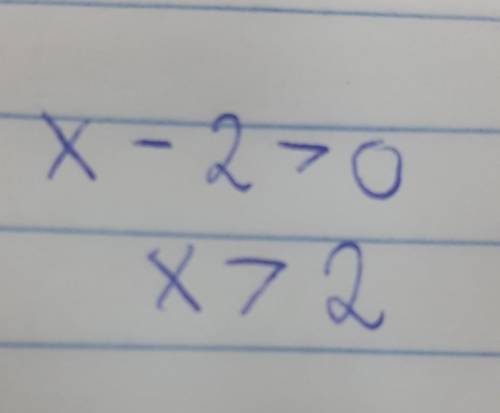 x - 2 > 0
x > 2